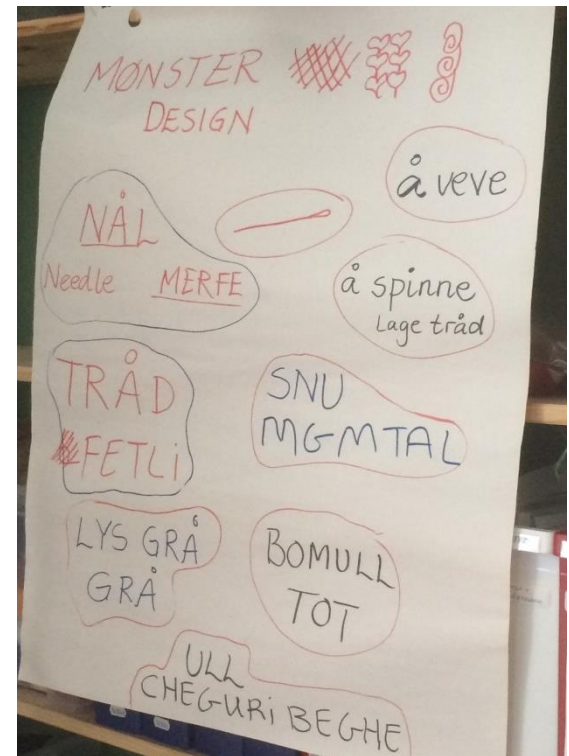 MØNSTER
DESIGN
å veve
NÅL
Needle MERFE
å spinne
Lage tråd
TRÅD
FETLi
SNU
MGMTAL
LYS GRÅ
GRÅ
BOMULL
TOT
ULL
CHEGURi BEGHE